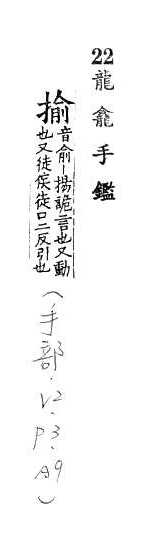 22龍龕手鑑
揄
音俞—揚詭言也又動
也又徒侯徒口二反引也
(手部.V2.P3.A9)